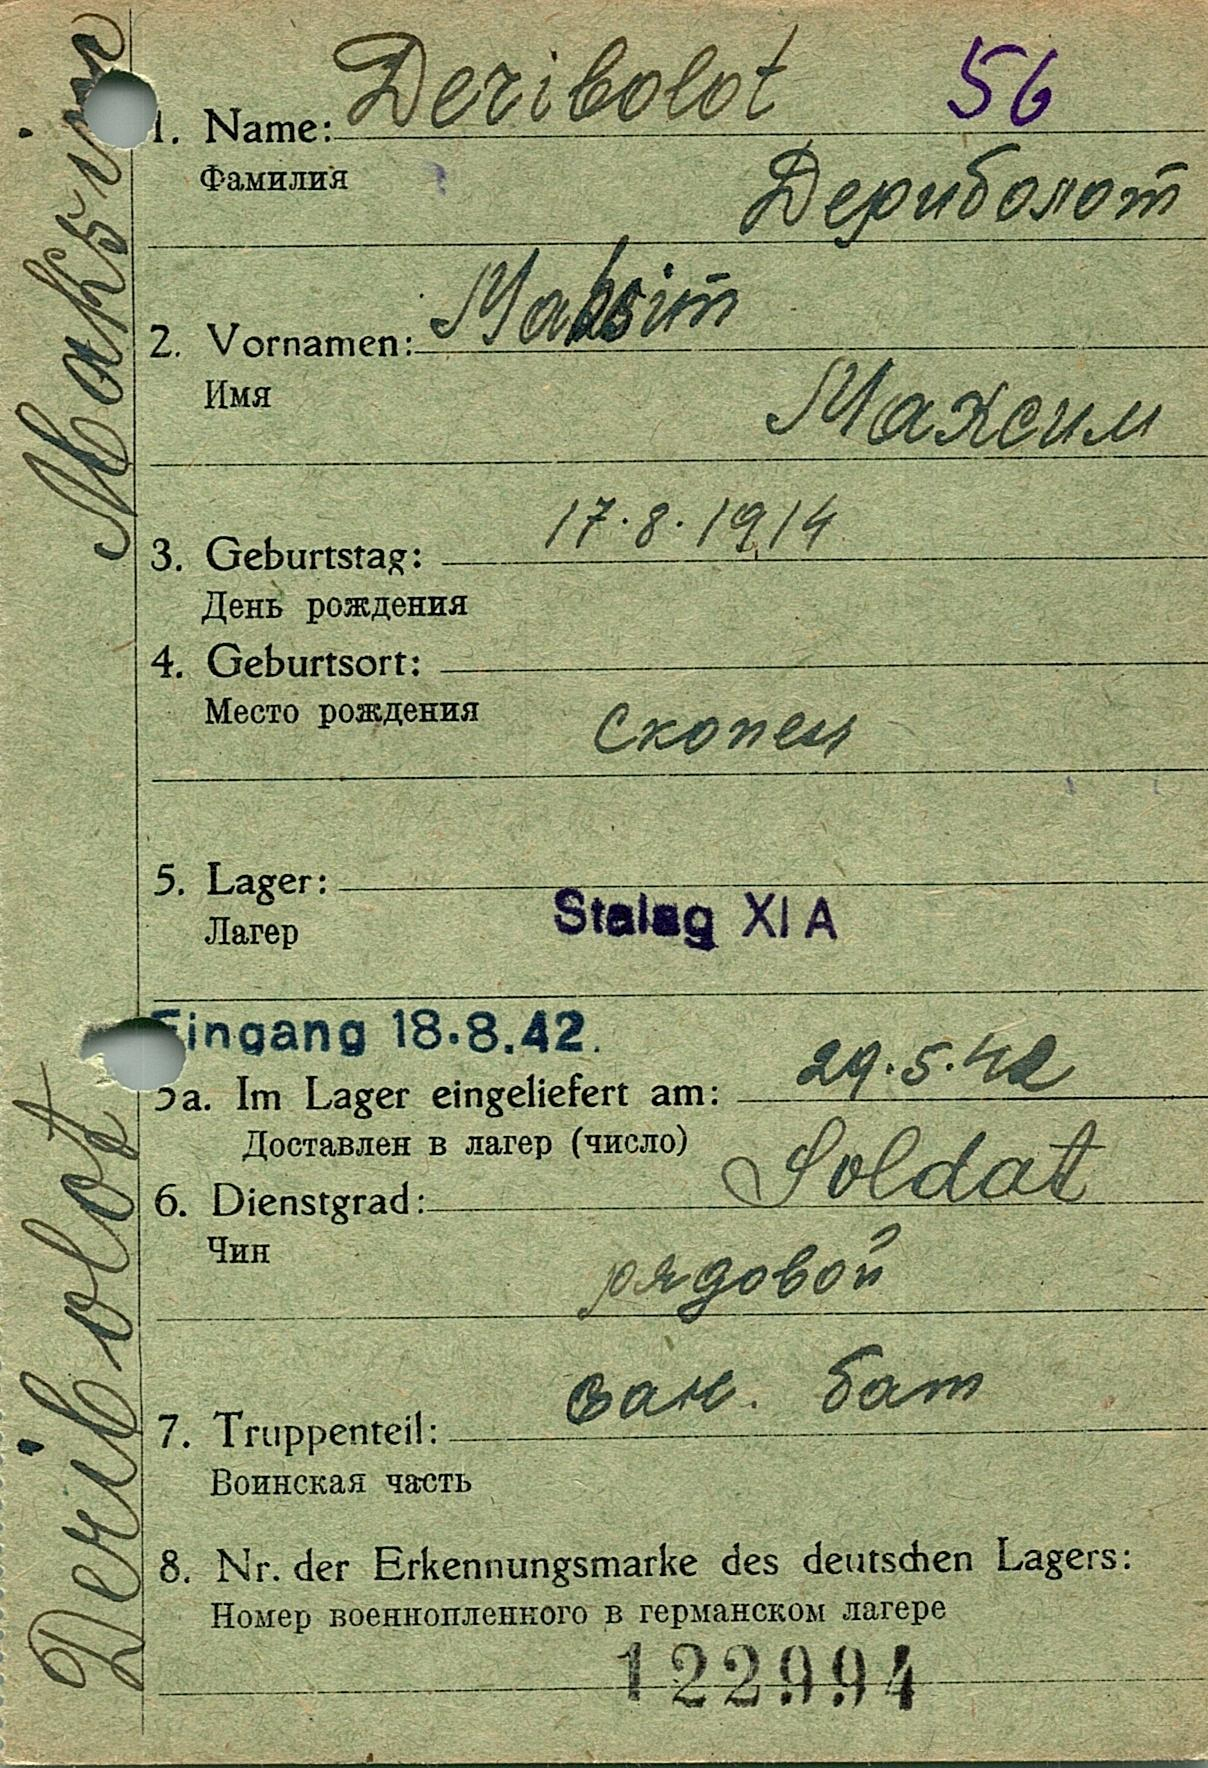 Deribolot 56
1. Name:
Фамилия
Дериболот
Maksim
2. Vornamen:
Имя
Максим
17.8.1914
3. Geburtstag:
День рождения
4. Geburtsort:
Место рождения
Скопен
5. Lager:
Лагер
Stalag XI A
Eingang 18.8.42.
5a. Im Lager eingeliefert am: 29.5.42
Доставлен в лагер (число)
6. Dienstgrad: Soldat
Чин
рядовой
бат
7. Truppenteil:
Воинская часть
8. Nr. der Erkennungsmarke des deutschen Lagers:
Номер военнопленного в германском лагере
122994
Deribolot Maksim